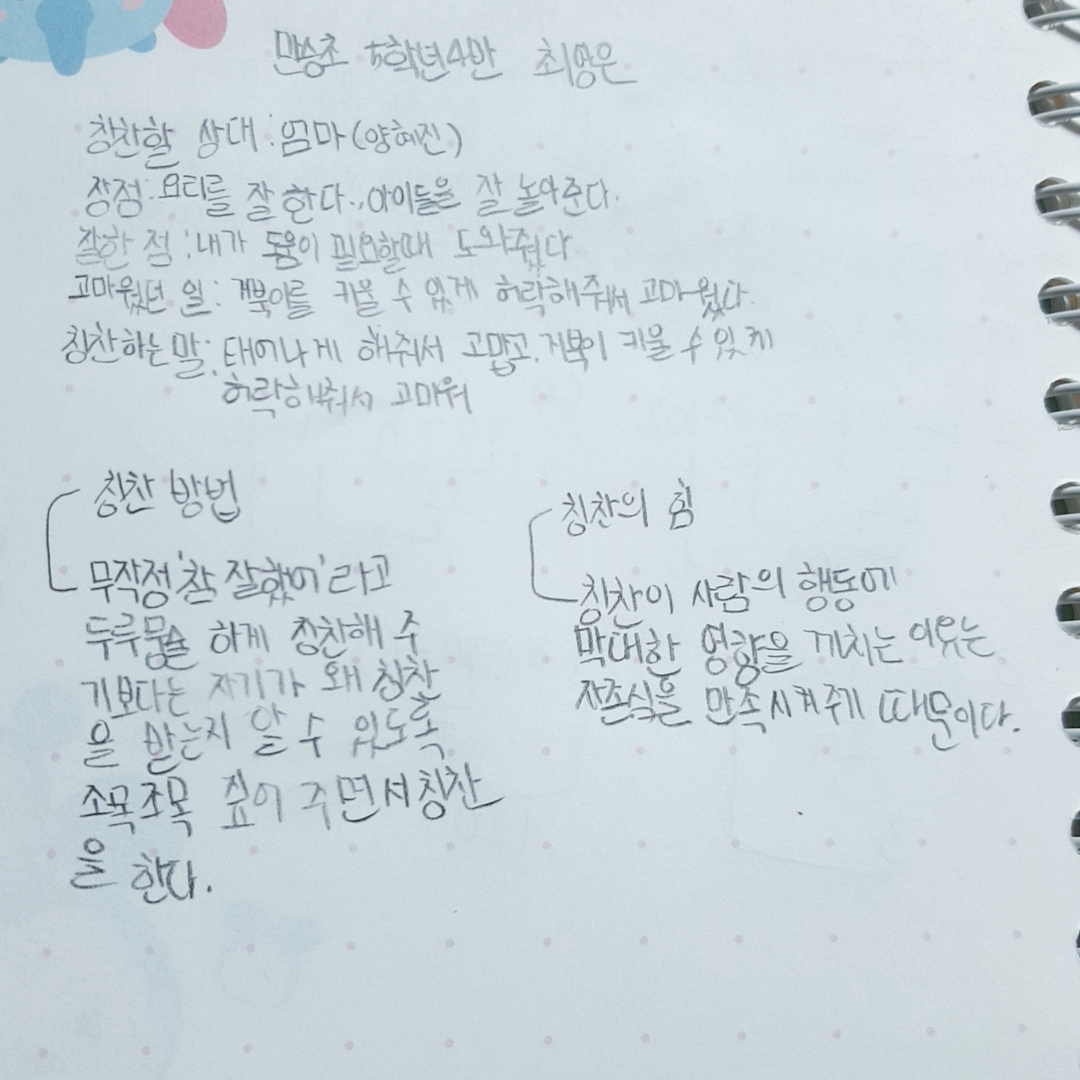 만승초 5학년 4반 최영은
칭찬할 상대 : 엄마(양혜진)
장점 : 요리를 잘 한다., 아이들을 잘 놀아준다.
잘한 점 : 내가 도움이 필요할때 도와줬다
고마웠던 일 : 거북이를 키울 수 있게 허락해주셔서 고마웠다.
칭찬하는 말 : 태어나게 해줘서 고맙고, 거북이 키울 수 있게
허락해줘서 고마워
칭찬 방법
무작정 '참 잘했어' 라고
두루뭉술 하게 칭찬해 주
기보다는 자기가 왜 칭찬
을 받는지 알 수 있도록
조목조목 짚어 주면서 칭찬
을 한다.
칭찬의 힘
칭찬이 사람의 행동에
막대한 영향을 끼치는 이유는
자존심을 만족시켜주기 때문이다.